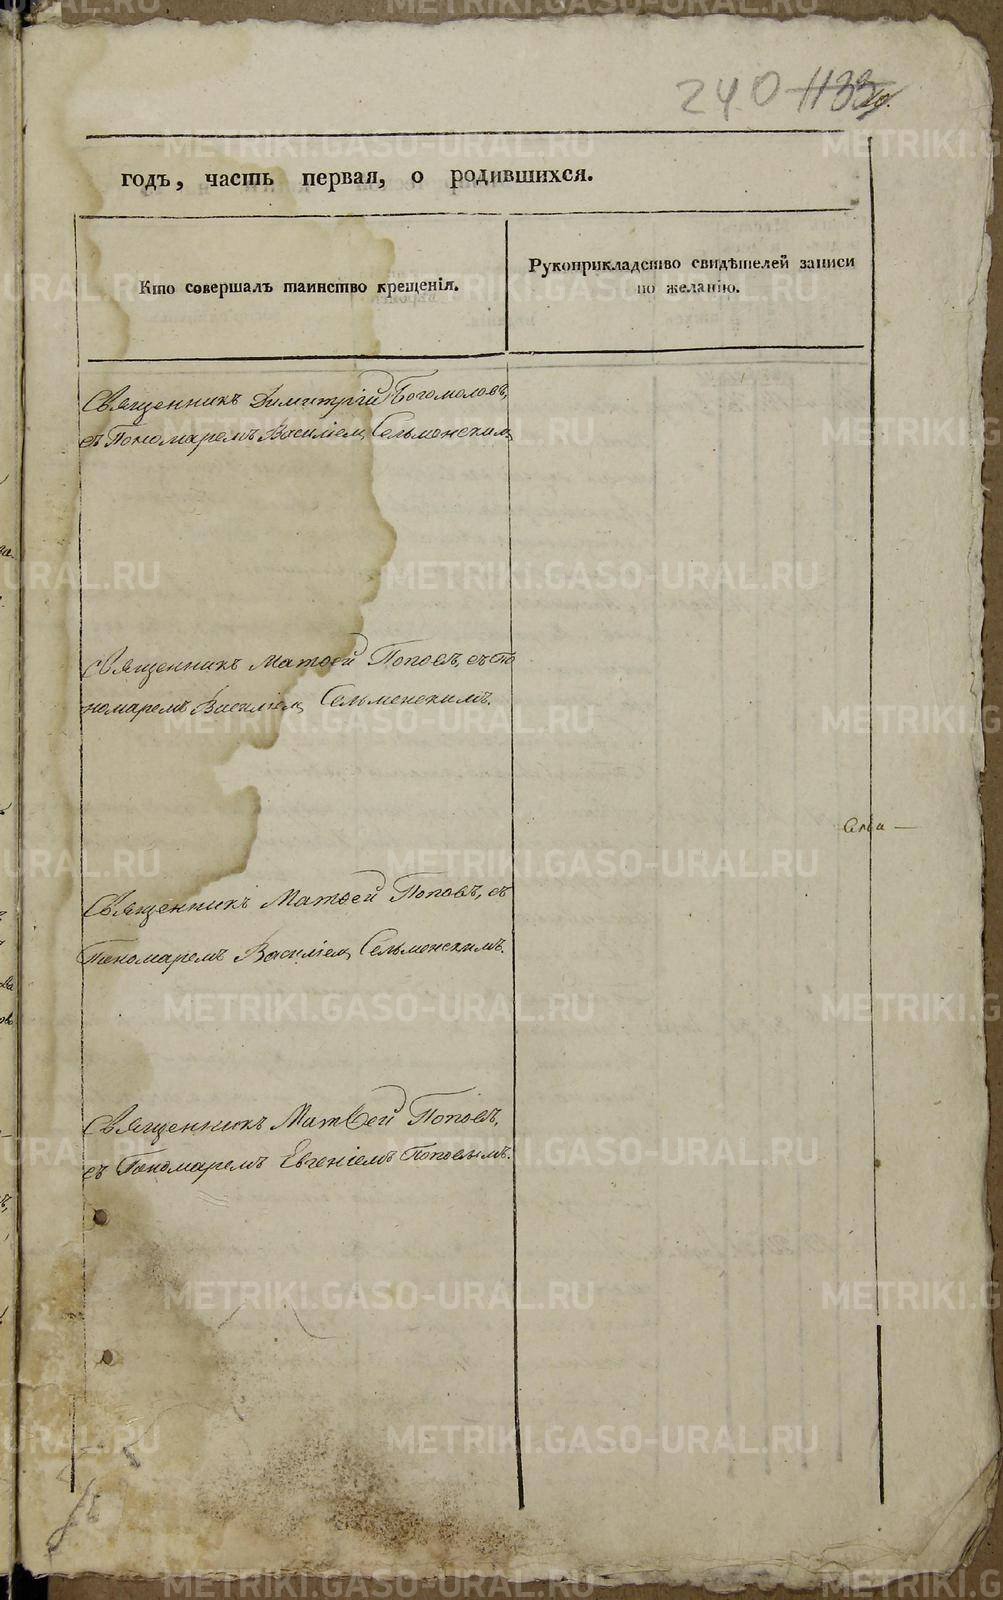 240 1133
годъ, часть первая, о родившихся.
Кто совершалъ таинство крещенія.
Рукоприкладство свидѣтелей записи
по желанію.
Священникъ Димитрій Богомоловъ,
съ Пономаремъ Василіемъ Сельменскимъ
Священникъ Матѳей Поповъ, съ По
номаремъ Василіемъ Сельменскимъ.
Священникъ Матѳей Поповъ, съ
Пономаремъ Василіемъ Сельменскимъ.
Священникъ Матвей Поповъ,
съ Пономаремъ Евгеніемъ Поповымъ.
METRIKI.GASO-URAL.RU